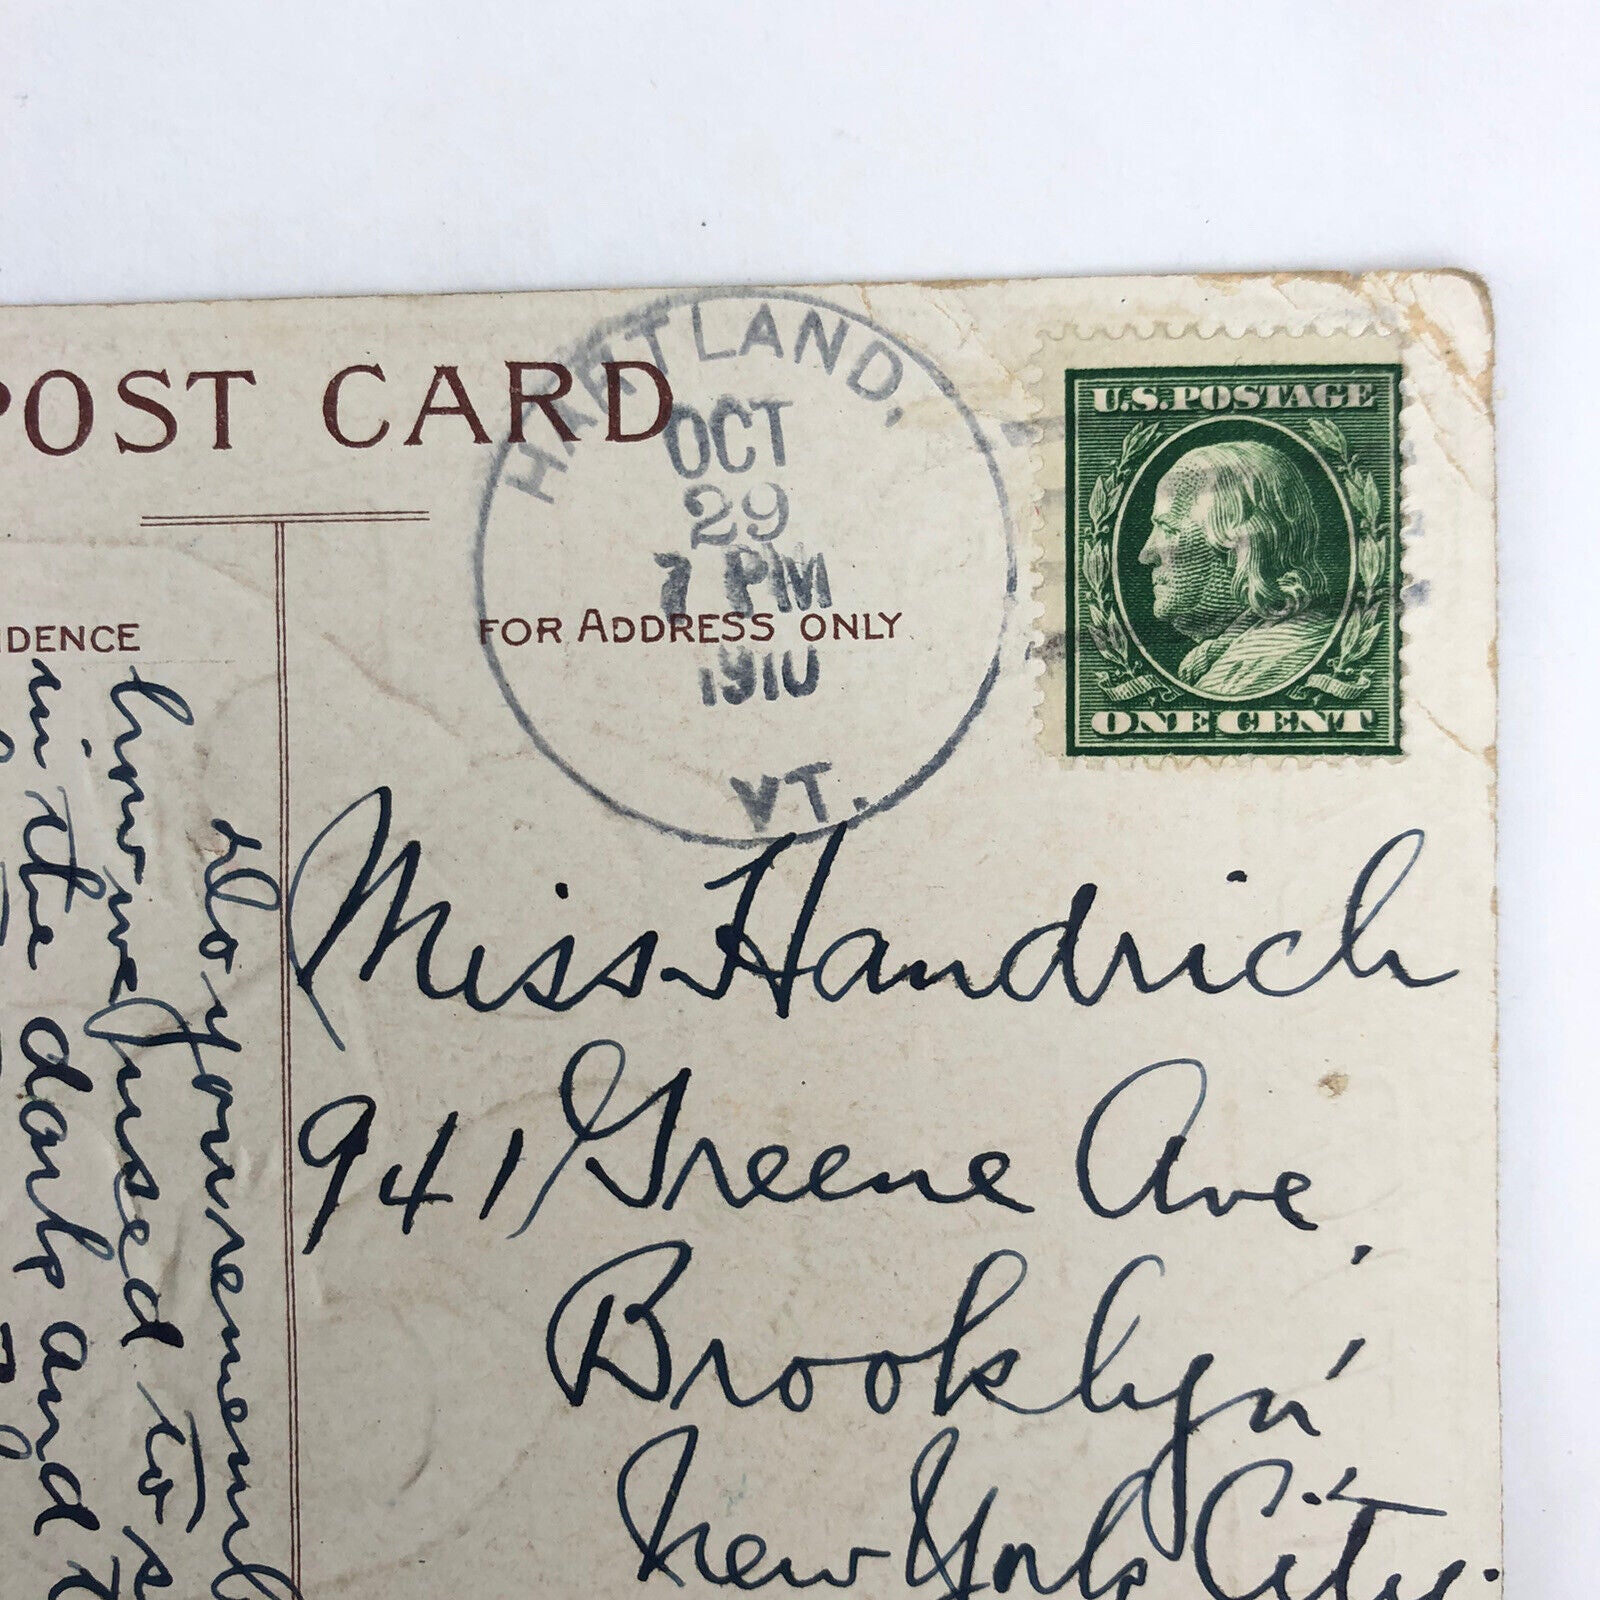 POST CARD
HARTLAND,
OCT
29
7 PM
1910
VT.
U.S. POSTAGE
ONE CENT
DENCE
FOR ADDRESS ONLY
Miss Handrich
941 Greene Ave,
Brooklyn,
New York City.
Do you rememb
how we used to s
in the dark and t